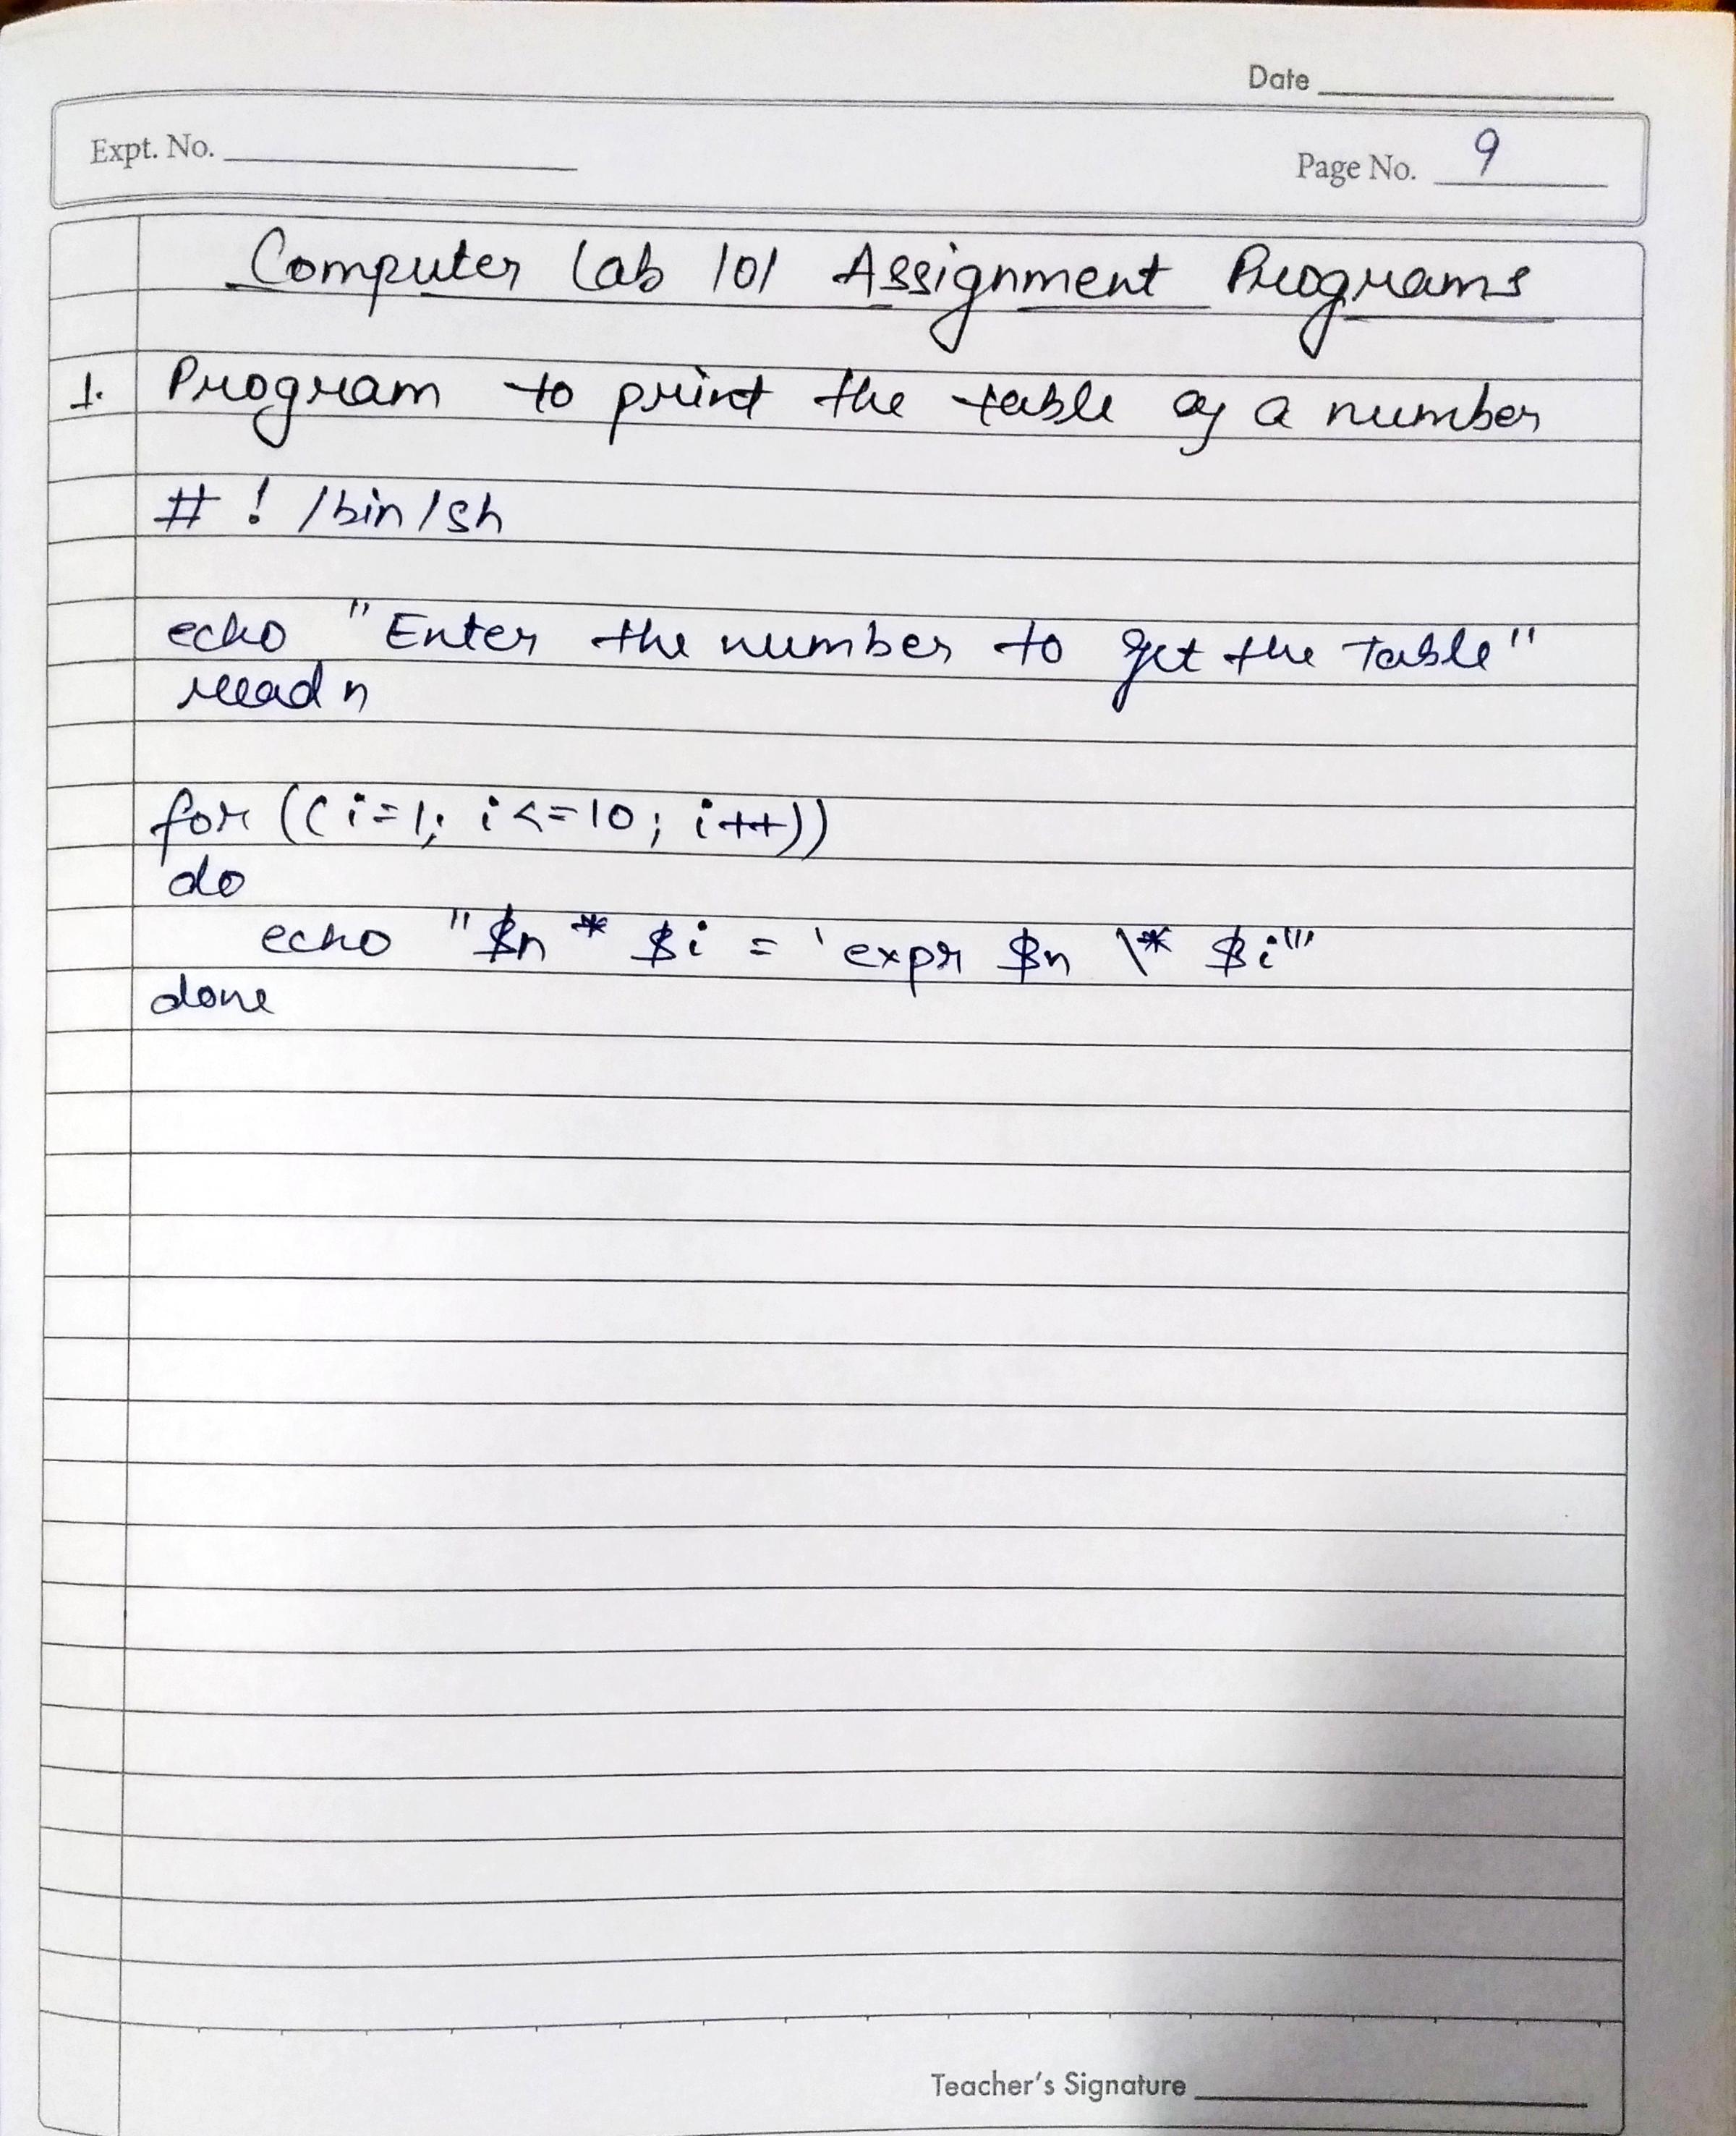 Date
Expt. No.
Page No. 9
Computer Lab 101 Assignment Programs
1. Program to print the table of a number
# ! /bin/sh
echo "Enter the number to get the Table"
read n
for ((i=1; i<=10; i++))
do
echo "$n * $i = 'expr $n \* $i'"
done
Teacher's Signature